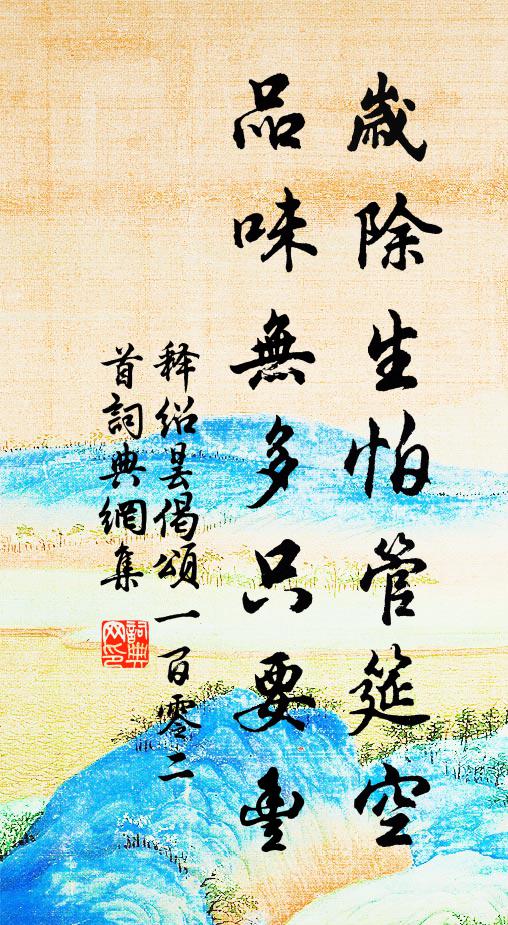 歲除生怕管筵空
品味無多只要豐
释绍昙偈頌一百零二
首詞典網集
詞典
网印